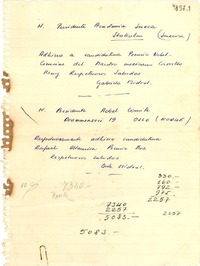 4837.1
H. Presidente Academia Sueca
Stokolm (Suecia)
Adhiero a candidatura Premio Nobel
Ciencias del Maestro mexicano
Muy Respetuosos Saludos
Gabriela Mistral
H. Presidente Nobel Comité
Drammensvei 19 OSLO (NORUEG)
Respetuosamente adhiero candidatura
Rafael Premio Paz
Respetuosos saludos
Gabr Mistral.
330.-
160.-
792.-
975.-
2257
7340.-
7340
2257
5083.-
2257
5083.-